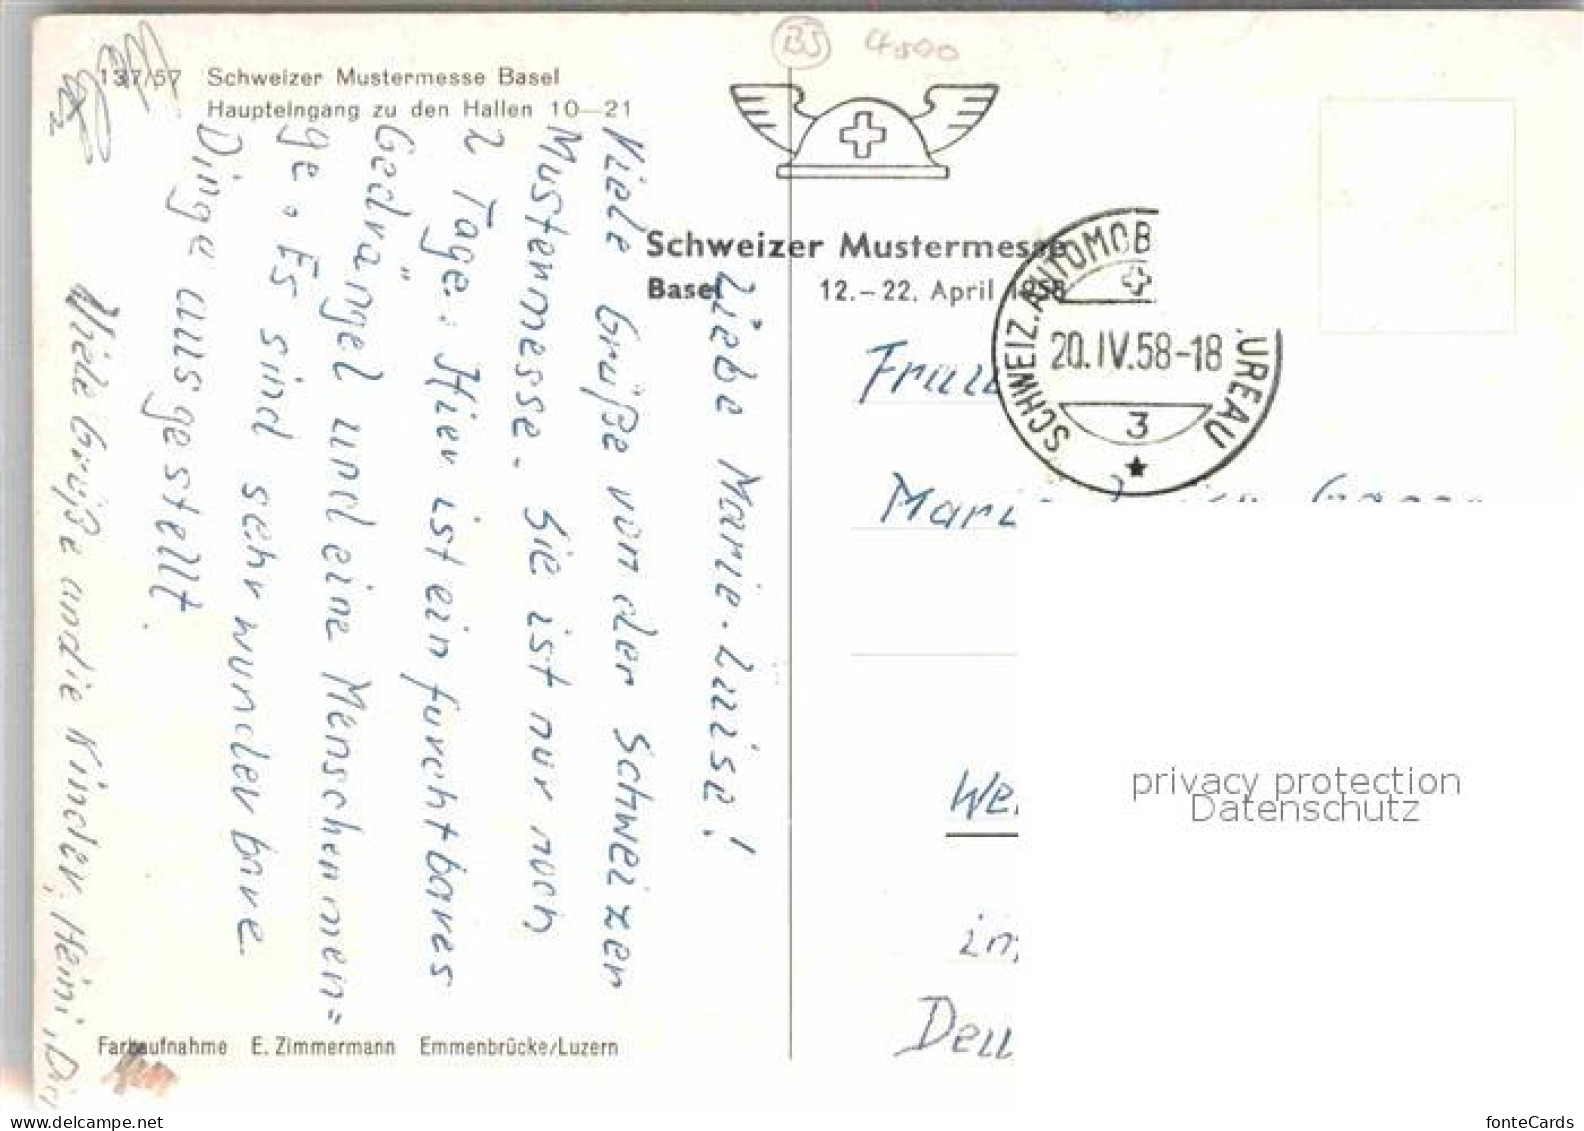 137/57 Schweizer Mustermesse Basel
Haupteingang zu den Hallen 10—21
BS 4500
Schweizer Mustermesse
Basel 12.–22. April 1958
SCHWEIZ. AUTOMOB UREAU
20.IV.58-18
3
Liebe Marie-Luise!
Viele Grüße von der Schweizer
Mustermesse. Sie ist nur noch
2 Tage. Hier ist ein furchtbares
Gedrängel und eine Menschenmen=
ge. Es sind sehr wunderbare
Dinge ausgestellt.
Viele Grüße an die Kinder, Heini,
Frau
in
privacy protection
Datenschutz
Farbaufnahme E. Zimmermann Emmenbrücke/Luzern
www.delcampe.net
fonteCards